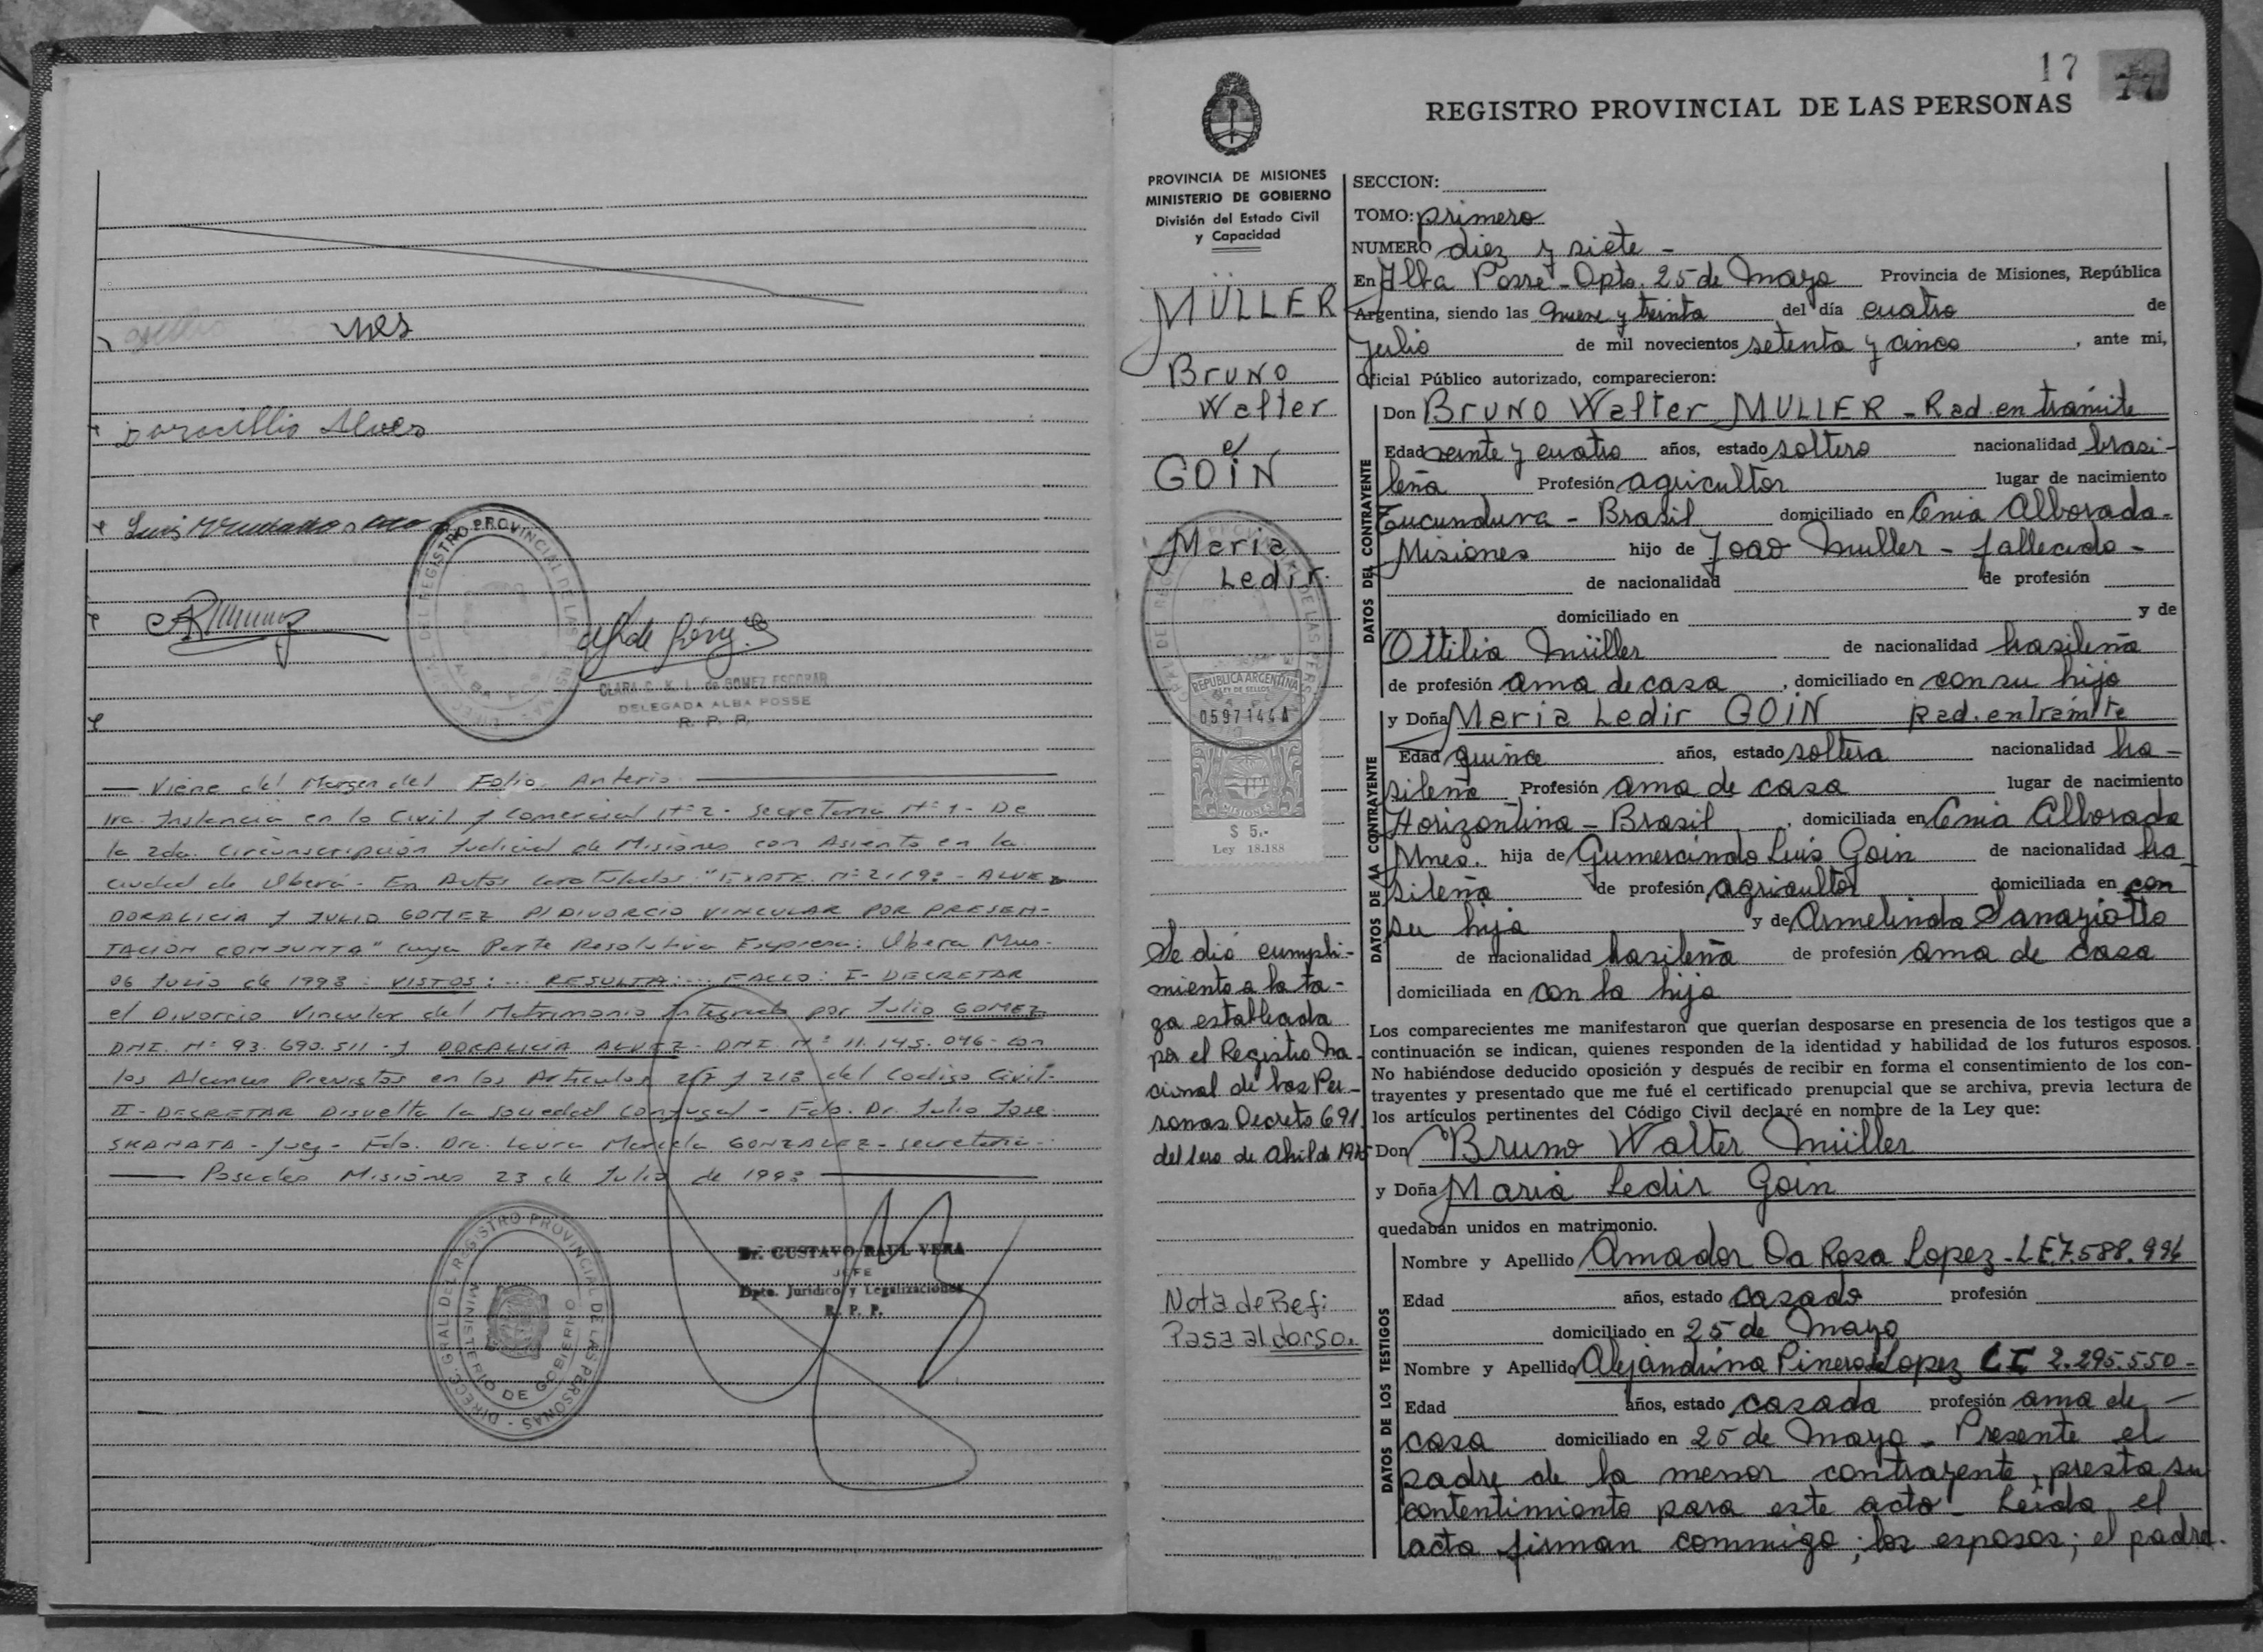 nes
Doracillio Alves
Luis
REGISTRO PROVINCIAL DE LAS PERSONAS
ALBA POSSE
CLARA C. K. L. de GOMEZ ESCOBAR
DELEGADA ALBA POSSE
R. P. P.
— Viene del Margen del Folio Anterio
1ra. Instancia en lo Civil y Comercial Nº 2 - Secretaria Nº 1 - De
la 2da. Circunscripción Judicial de Misiones con Asiento en la
ciudad de Oberá - En Autos Caratulados: "EXPTE. Nº - ALVEZ
DORALICIA Y JULIO GOMEZ P/ DIVORCIO VINCULAR POR PRESEN-
TACION CONJUNTA" cuya Parte Resolutiva Expresa: Oberá Mnes.
06 Julio de 1993: VISTOS: ... RESULTA: ... FALLO: I- DECRETAR
el Divorcio Vincular del Matrimonio Integrado por Julio GOMEZ
DNI. Nº 93.690.511 - y DORALICIA ALVEZ - DNI. Nº 11.145.046 - con
los Alcances Previstos en los Artículos 217 y 218 del Codigo Civil-
II - DECRETAR Disuelta la sociedad Conyugal - Fdo. Dr. Julio Jose
SKANATA - Juez - Fdo. Dra. Laura Mariela GONZALEZ - Secretaria -.
— Posadas Misiones 23 de Julio de 1993 —
DIREC. GRAL. DEL REGISTRO PROVINCIAL DE LAS PERSONAS
MINISTERIO DE GOBIERNO
Dr. GUSTAVO RAUL VERA
JEFE
Dpto. Jurídico y Legalizaciones
R. P. P.
17
REGISTRO PROVINCIAL DE LAS PERSONAS
PROVINCIA DE MISIONES
MINISTERIO DE GOBIERNO
División del Estado Civil
y Capacidad
MÜLLER
Bruno
Walter
c/
GOIN
Maria
Ledir.
REPUBLICA ARGENTINA
LEY DE SELLOS
0597144A
MISIONES
$ 5.-
Ley 18.188
Se dió cumpli-
miento a la ta-
za establecida
por el Registro Na-
cional de las Per-
sonas Decreto 691
del 1ero de Abril de 1975
Nota de Ref:
Pasa al dorso.
SECCION:
TOMO: primero
NUMERO diez y siete -
En Alba Posse - Dpto. 25 de Mayo Provincia de Misiones, República
Argentina, siendo las nueve y treinta del día cuatro de
Julio de mil novecientos setenta y cinco, ante mi,
Oficial Público autorizado, comparecieron:
DATOS DEL CONTRAYENTE
Don Bruno Walter MULLER - Rad. en tramite
Edad veinte y cuatro años, estado soltero nacionalidad brasi-
leña Profesión agricultor lugar de nacimiento
Tucunduva - Brasil domiciliado en Cnia Alborada -
Misiones hijo de Joao Muller - fallecido -
de nacionalidad de profesión
domiciliado en y de
Ottilia Müller de nacionalidad brasileña
de profesión ama de casa, domiciliado en con su hijo
DATOS DE LA CONTRAYENTE
y Doña Maria Ledir GOIN Rad. en tramite
Edad quince años, estado soltera nacionalidad bra-
sileña Profesión ama de casa lugar de nacimiento
Horizontina - Brasil, domiciliada en Cnia Alborada
Mnes. hija de Gumercindo Luis Goin de nacionalidad bra-
sileña de profesión agricultor domiciliada en con
su hija y de Armelinda Sanaziotto
de nacionalidad brasileña de profesión ama de casa
domiciliada en con la hija
Los comparecientes me manifestaron que querían desposarse en presencia de los testigos que a
continuación se indican, quienes responden de la identidad y habilidad de los futuros esposos.
No habiéndose deducido oposición y después de recibir en forma el consentimiento de los con-
trayentes y presentado que me fué el certificado prenupcial que se archiva, previa lectura de
los artículos pertinentes del Código Civil declaré en nombre de la Ley que:
Don Bruno Walter Müller
y Doña Maria Ledir Goin
quedaban unidos en matrimonio.
DATOS DE LOS TESTIGOS
Nombre y Apellido Amador Da Rosa Lopez - LE 7.588.996
Edad años, estado casado profesión
domiciliado en 25 de Mayo
Nombre y Apellido Alejandrina Pinero de Lopez CI 2.295.550 -
Edad años, estado casada profesión ama de -
casa domiciliado en 25 de Mayo - Presente el
padre de la menor contrayente, presta su
contentimiento para este acto - Leida el
acta firman conmigo; los esposos; el padre.